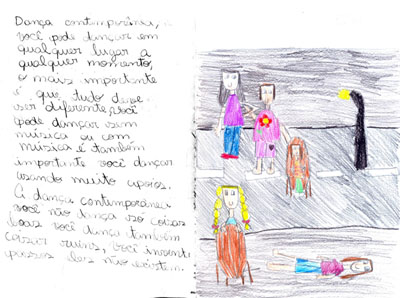 Dança contemporânea,
você pode dançar em
qualquer lugar a
qualquer momento,
o mais importante
é que tudo deve
ser diferente, você
pode dançar sem
música ou com
música é também
importante você dançar
usando muito apoios.
A dança contemporânea
você não dança só coisas
boas você dança também
coisas ruins, você inventa
passos les não existem.